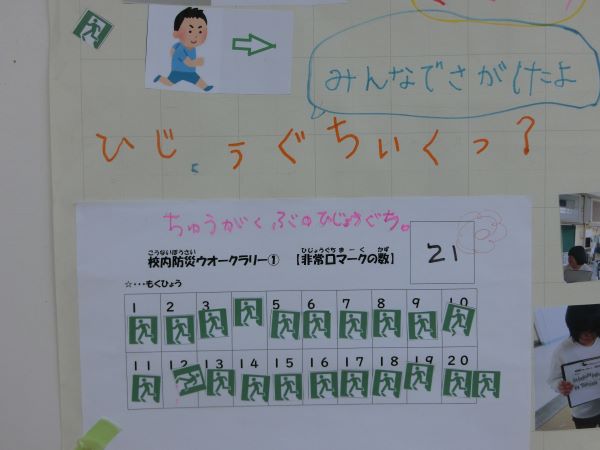 みんなでさがしたよ
ひじょうぐちいくつ?
ちゅうがくぶのひじょうぐち。
こうないぼうさい
校内防災ウオークラリー①
ひじょうぐちまーく かず
【非常口マークの数】
21
☆・・・もくひょう
1 2 3 5 6 7 8 9 10
11 12 13 14 15 16 17 18 19 20